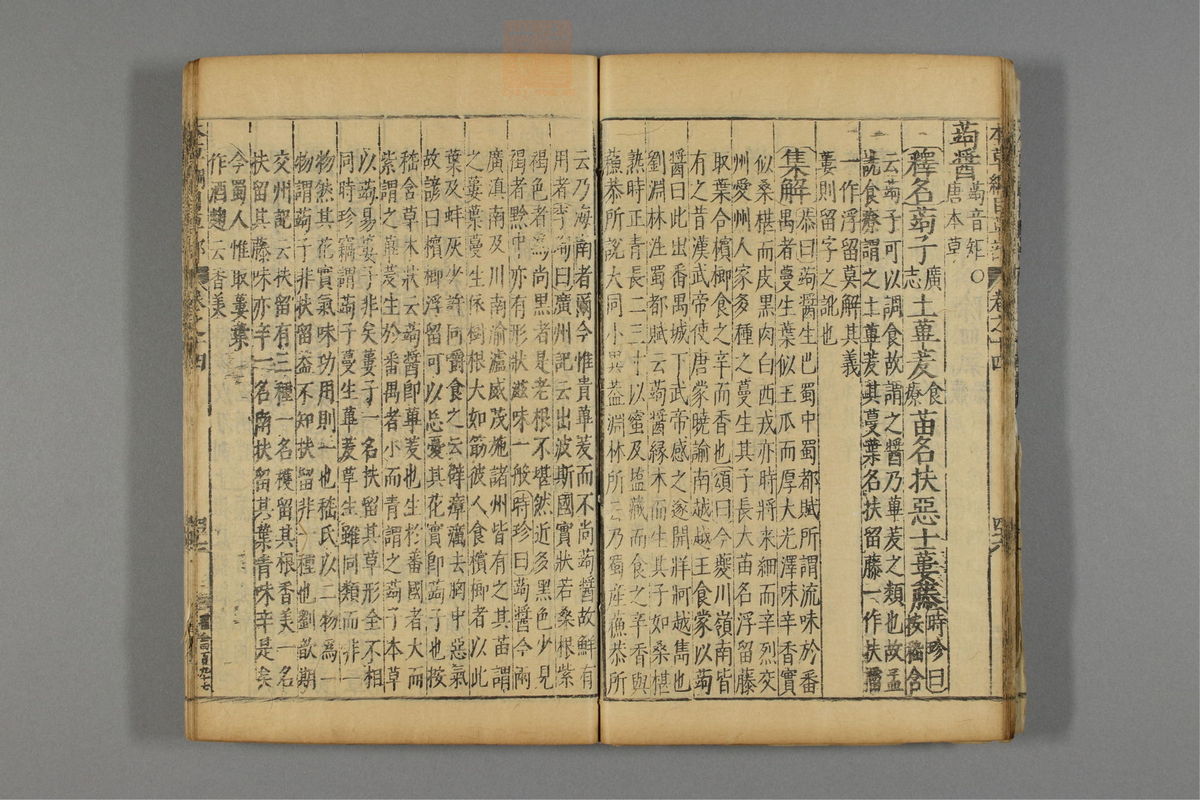 蒟醬 蒟音矩○
唐本草
釋名蒟子 廣志 土蓽茇 食療 苗名扶惡士蔞藤 時珍曰按嵇含
云蒟子可以調食故謂之醬乃蓽茇之類也故孟
詵食療謂之土蓽茇其蔓葉名扶留藤一作扶
一作浮留莫解其義
蔞則留字之訛也
集解 恭曰蒟醬生巴蜀中蜀都賦所謂流味於番
禺者蔓生葉似王瓜而厚大光澤味辛香實
似桑椹而皮黑肉白西戎亦時將来細而辛烈交
州愛州人家多種之蔓生其子長大苗名浮留藤
取葉合檳榔食之辛而香也頌曰今夔川嶺南皆
有之昔漢武帝使唐蒙曉諭南越越王食蒙以蒟
醬曰此出番禺城下武帝感之遂開牂牁越雋也
劉淵林注蜀都賦云蒟醬緣木而生其子如桑椹
熟時正青長二三寸以蜜及塩藏而食之辛香與
蘓恭所説大同小異葢淵林所云乃蜀産蘓恭所
云乃海南者爾今惟貴蓽茇而不尚蒟醬故鮮有
用者李珣曰廣州記云出波斯國實狀若桑椹紫
褐色者為尚黑者是老根不堪然近多黑色少見
褐者黔中亦有形狀滋味一般時珍曰蒟醬今兩
廣滇南及川南渝瀘威茂施諸州皆有之其苗謂
之蔞葉蔓生依樹根大如筯彼人食檳榔者以此
葉及蚌灰少許同嚼食之云辟瘴癘去胸中惡氣
故諺曰檳榔浮留可以忘憂其花實即蒟子也按
嵇含草木狀云蒟醬即蓽茇也生於番國者大而
紫謂之蓽茇生於番禺者小而青謂之蒟子本草
以蒟易蔞子非矣蔞子一名扶留其草形全不相
同時珍竊謂蒟子蔓生蓽茇草生雖同類而非一
物然其花實氣味功用則一也嵇氏以二物為一
物謂蒟子非扶留葢不知扶留非一種也劉歆期
交州記云扶留有三種一名穫留其根香美一名
扶留其藤味亦辛一名南扶留其葉青味辛是矣
今蜀人惟取蔞葉
作酒麯云香美
卷之十四